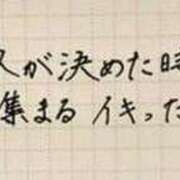 が決めた時
集まる イキった